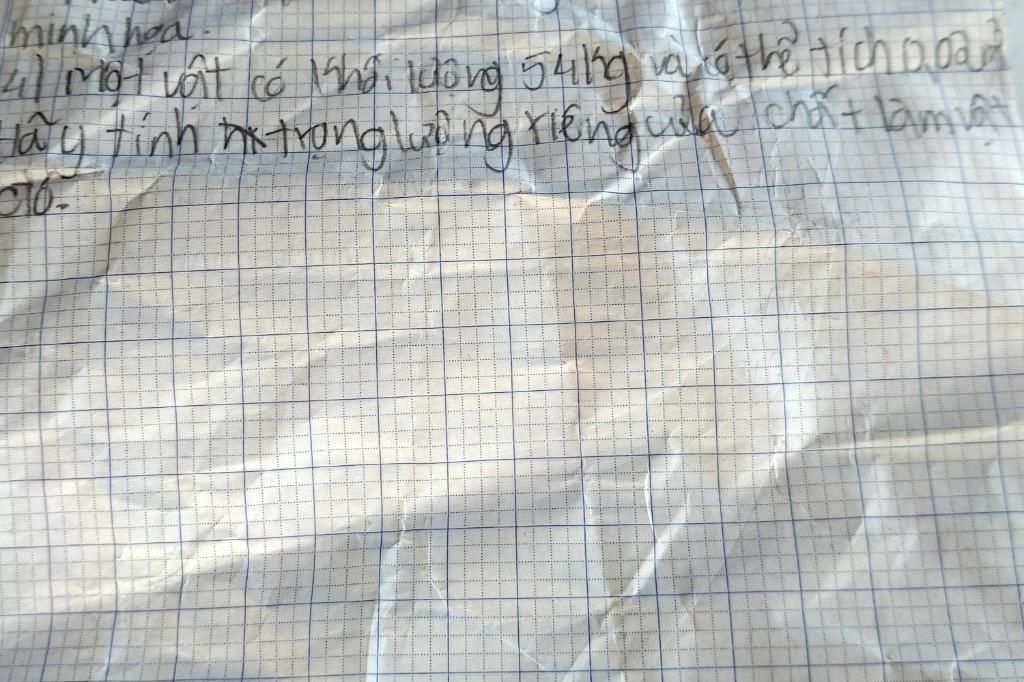 minh họa.
4) Một vật có khối lượng 54kg và có thể tích 0,02m³
Hãy tính trọng lượng riêng của chất làm vật
đó.